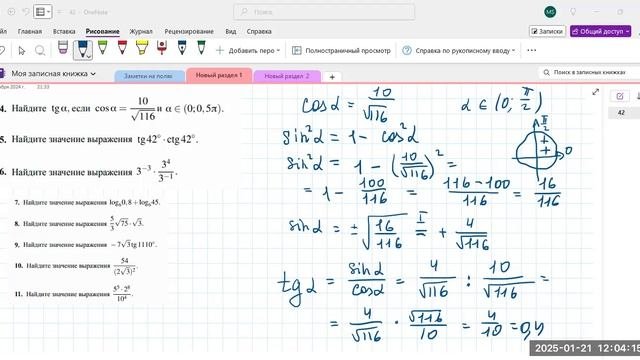 42 - OneNote
Поиск
MS
Файл Главная Вставка Рисование Журнал Рецензирование Вид Справка
Записки
Общий доступ
Добавить перо
Полноэкранный просмотр
Справка по рукописному вводу
Моя записная книжка
Заметки на полях
Новый раздел 1
Новый раздел 2
Поиск в записных книжках
21:33
42
4. Найдите tg α, если cos α = 10/√116 и α ∈ (0; 0,5π).
5. Найдите значение выражения tg 42° · ctg 42°.
6. Найдите значение выражения 3⁻³ · 3⁴/3⁻¹.
7. Найдите значение выражения log₆0,8 + log₆45.
8. Найдите значение выражения 5/3 √75 · √3.
9. Найдите значение выражения −7√3 tg 1110°.
10. Найдите значение выражения 54/(2√3)².
11. Найдите значение выражения 5⁵ · 2⁸/10⁴.
cos α = 10/√116 α ∈ (0; π/2)
sin²α = 1 − cos²α
sin²α = 1 − (10/√116)² =
= 1 − 100/116 = 116−100/116 = 16/116
sin α = ±√16/116 I= + 4/√116
tg α = sin α/cos α = 4/√116 : 10/√116 =
= 4/√116 · √116/10 = 4/10 = 0,4
π/2
+
+
0
2025-01-21 12:04:15